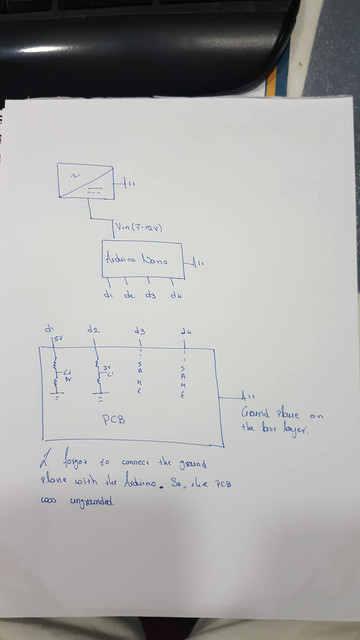 Vin (7-12V)
Arduino Nano
d1 d2 d3 d4
d1 d2 d3 d4
5V
3V
3V
S
A
M
E
S
A
M
E
PCB
Ground Plane on
the bot layer.
I forgot to connect the ground
plane with the Arduino. So, the PCB
was ungrounded